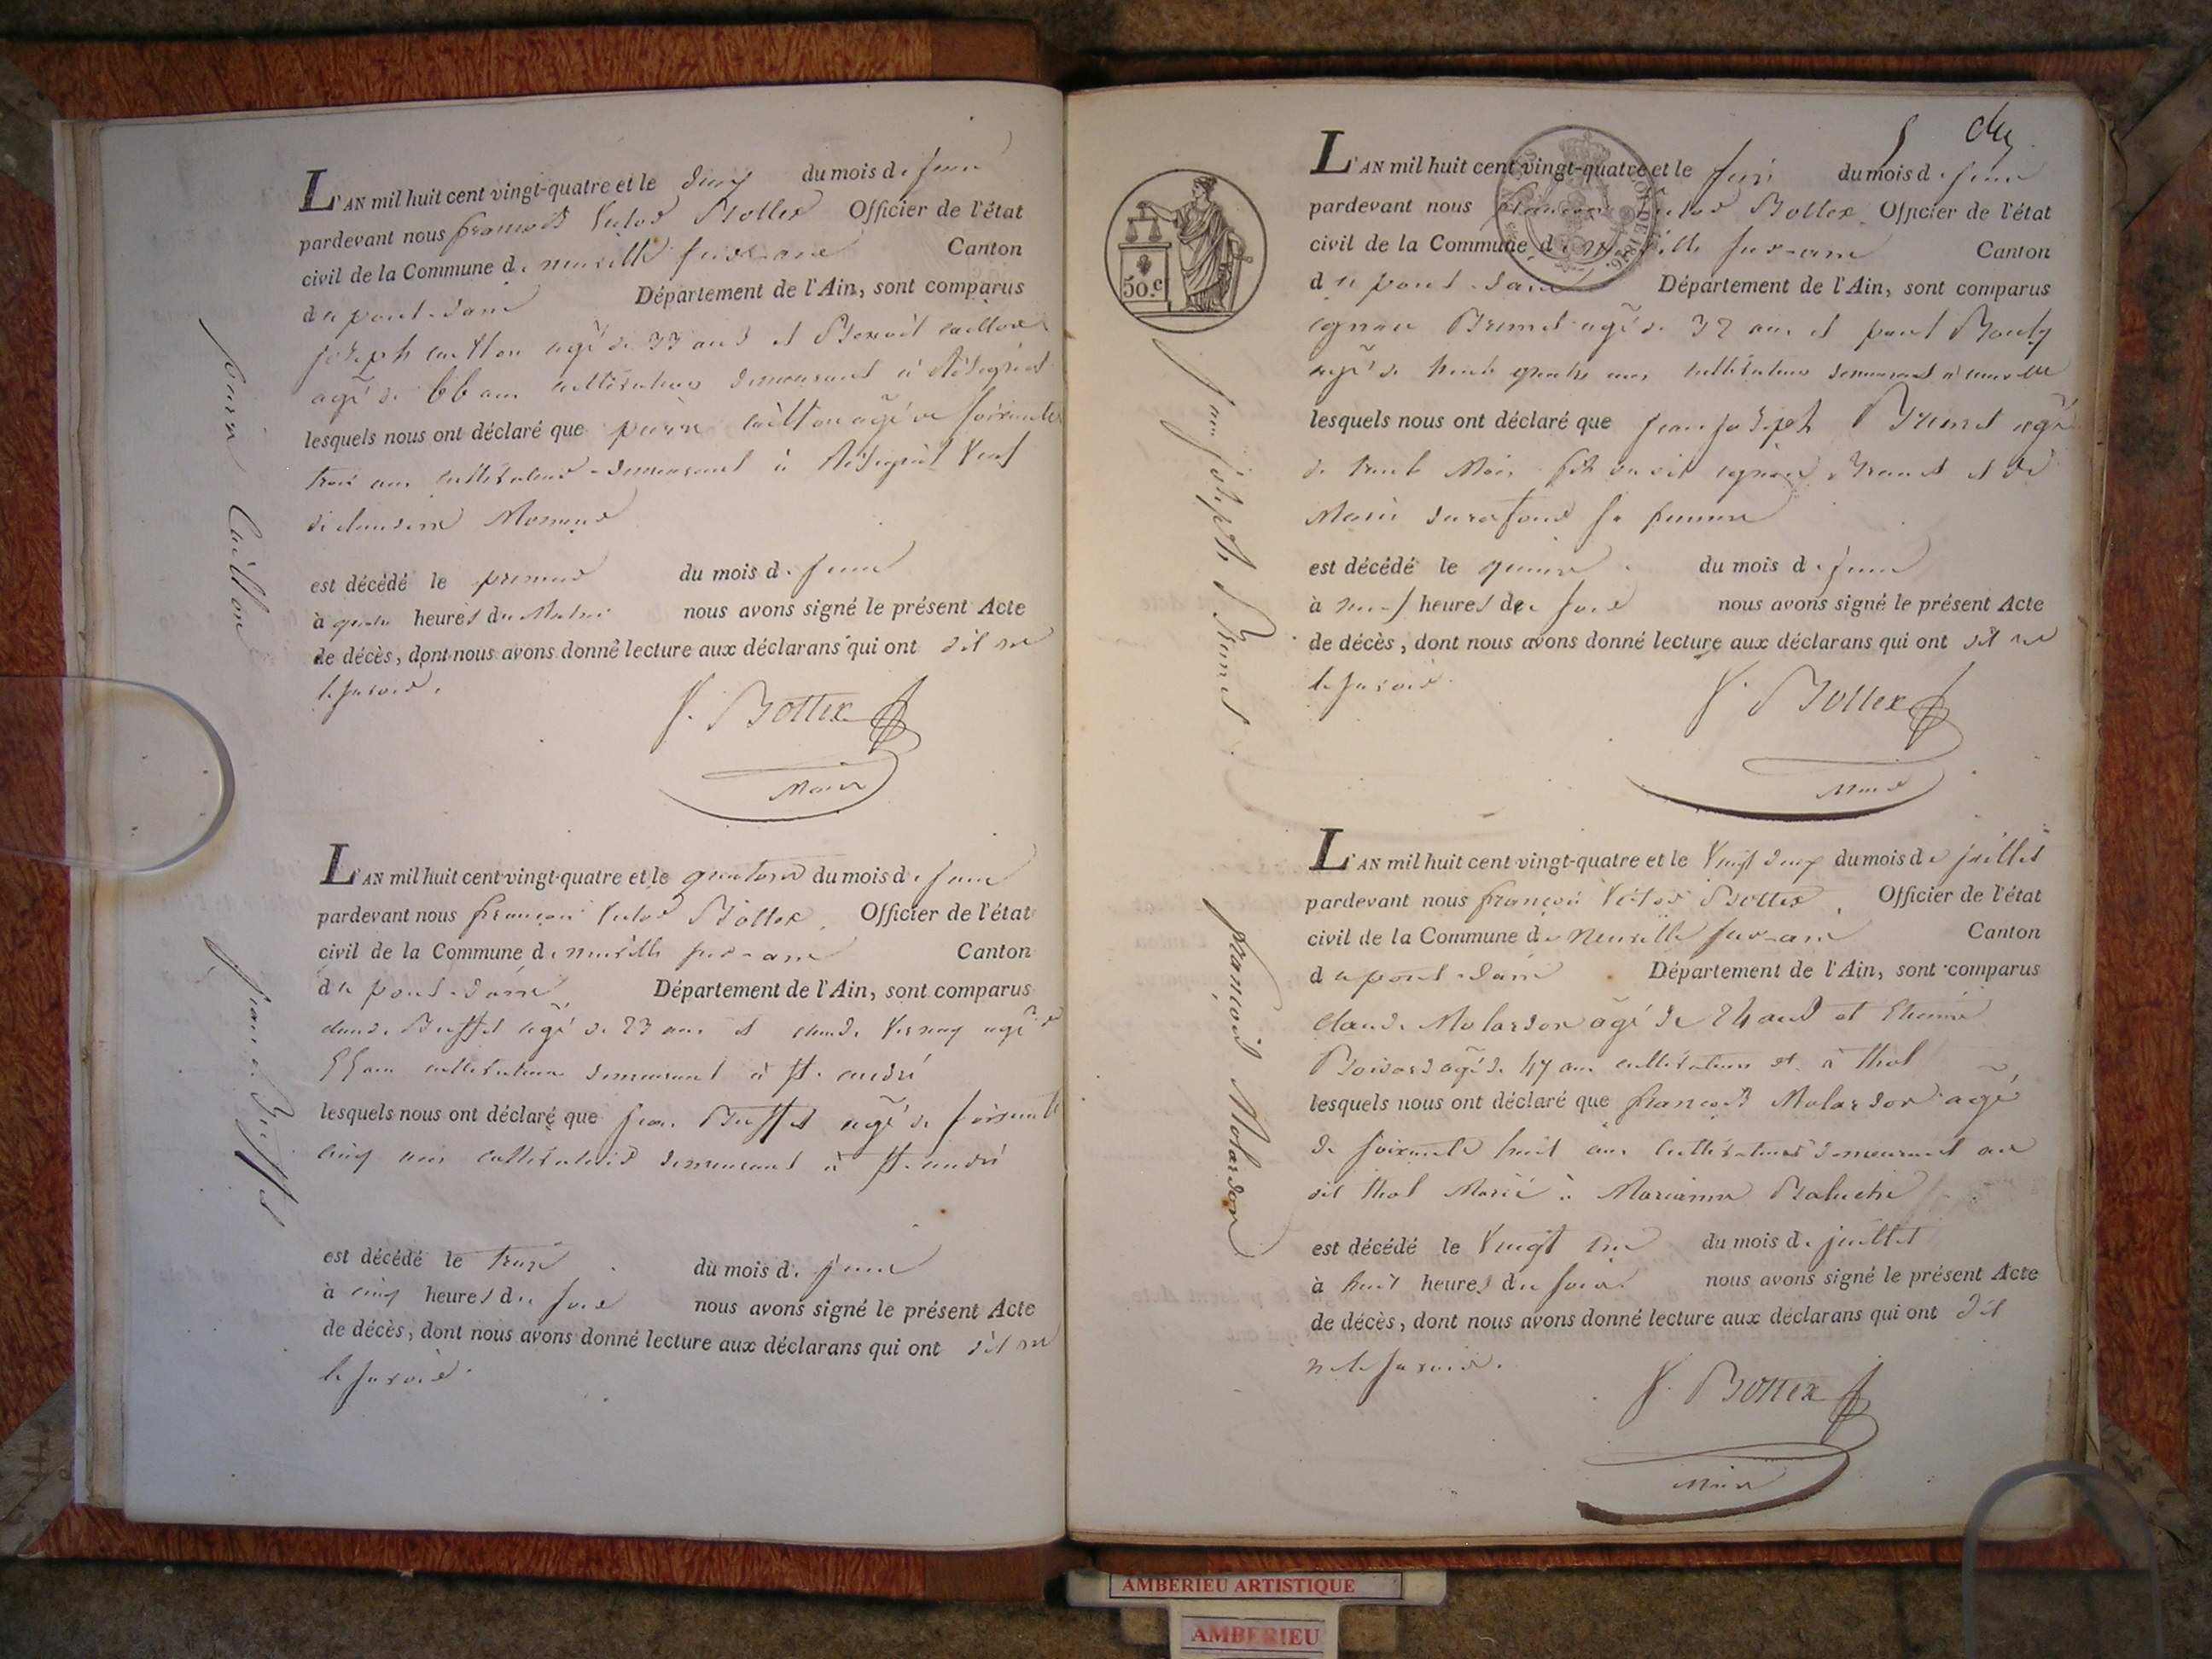 L'AN mil huit cent vingt-quatre et le deux du mois de juin
pardevant nous françois Victor Bottex Officier de l'état
civil de la Commune de neuville sur-ain Canton
de pont-dain Département de l'Ain, sont comparus
joseph caillon agé de 33 ans et Benoit caillon
agé de 66 ans cultivateurs demeurant à
lesquels nous ont déclaré que pierre caillon agé de soixante
trois ans cultivateur demeurant à veuf
de claudine
est décédé le premier du mois de juin
à quatre heures du Matin nous avons signé le présent Acte
de décès, dont nous avons donné lecture aux déclarans qui ont dit ne
le savoir.
V. Bottex
Maire
pierre Caillon
L'AN mil huit cent vingt-quatre et le quatorze du mois de juin
pardevant nous françois Victor Bottex Officier de l'état
civil de la Commune de neuville sur-ain Canton
de pont-dain Département de l'Ain, sont comparus
claude Buffet agé de 23 ans et claude Vernay agé de
55 ans cultivateurs demeurant à St. andré
lesquels nous ont déclaré que jean Buffet agé de soixante
cinq ans cultivateur demeurant à St. andré
est décédé le treize du mois de juin
à cinq heures du soir nous avons signé le présent Acte
de décès, dont nous avons donné lecture aux déclarans qui ont dit ne
le savoir.
jean Buffet
5
50.c
L'AN mil huit cent vingt-quatre et le seize du mois de juin
pardevant nous françois Victor Bottex Officier de l'état
civil de la Commune de neuville sur-ain Canton
de pont-dain Département de l'Ain, sont comparus
Brunet agé de 32 ans et
agé de trente quatre ans cultivateurs demeurant à neuville
lesquels nous ont déclaré que jean joseph Brunet agé
de trente Mois fils du dit Brunet et de
Marie sa femme
est décédé le quinze du mois de juin
à neuf heures du soir nous avons signé le présent Acte
de décès, dont nous avons donné lecture aux déclarans qui ont dit ne
le savoir
V. Bottex
Maire
jean joseph Brunet
L'AN mil huit cent vingt-quatre et le Vingt deux du mois de juillet
pardevant nous françois Victor Bottex Officier de l'état
civil de la Commune de Neuville sur-ain Canton
de pont-dain Département de l'Ain, sont comparus
claude Molardon agé de 24 ans et Etienne
agé de 47 ans cultivateurs à thol
lesquels nous ont déclaré que françois Molardon agé
de soixante huit ans cultivateur demeurant au
dit thol Marié à Marianne
est décédé le Vingt un du mois de juillet
à huit heures du soir nous avons signé le présent Acte
de décès, dont nous avons donné lecture aux déclarans qui ont dit
ne le savoir.
V. Bottex
Maire
françois Molardon
AMBERIEU ARTISTIQUE
AMBERIEU